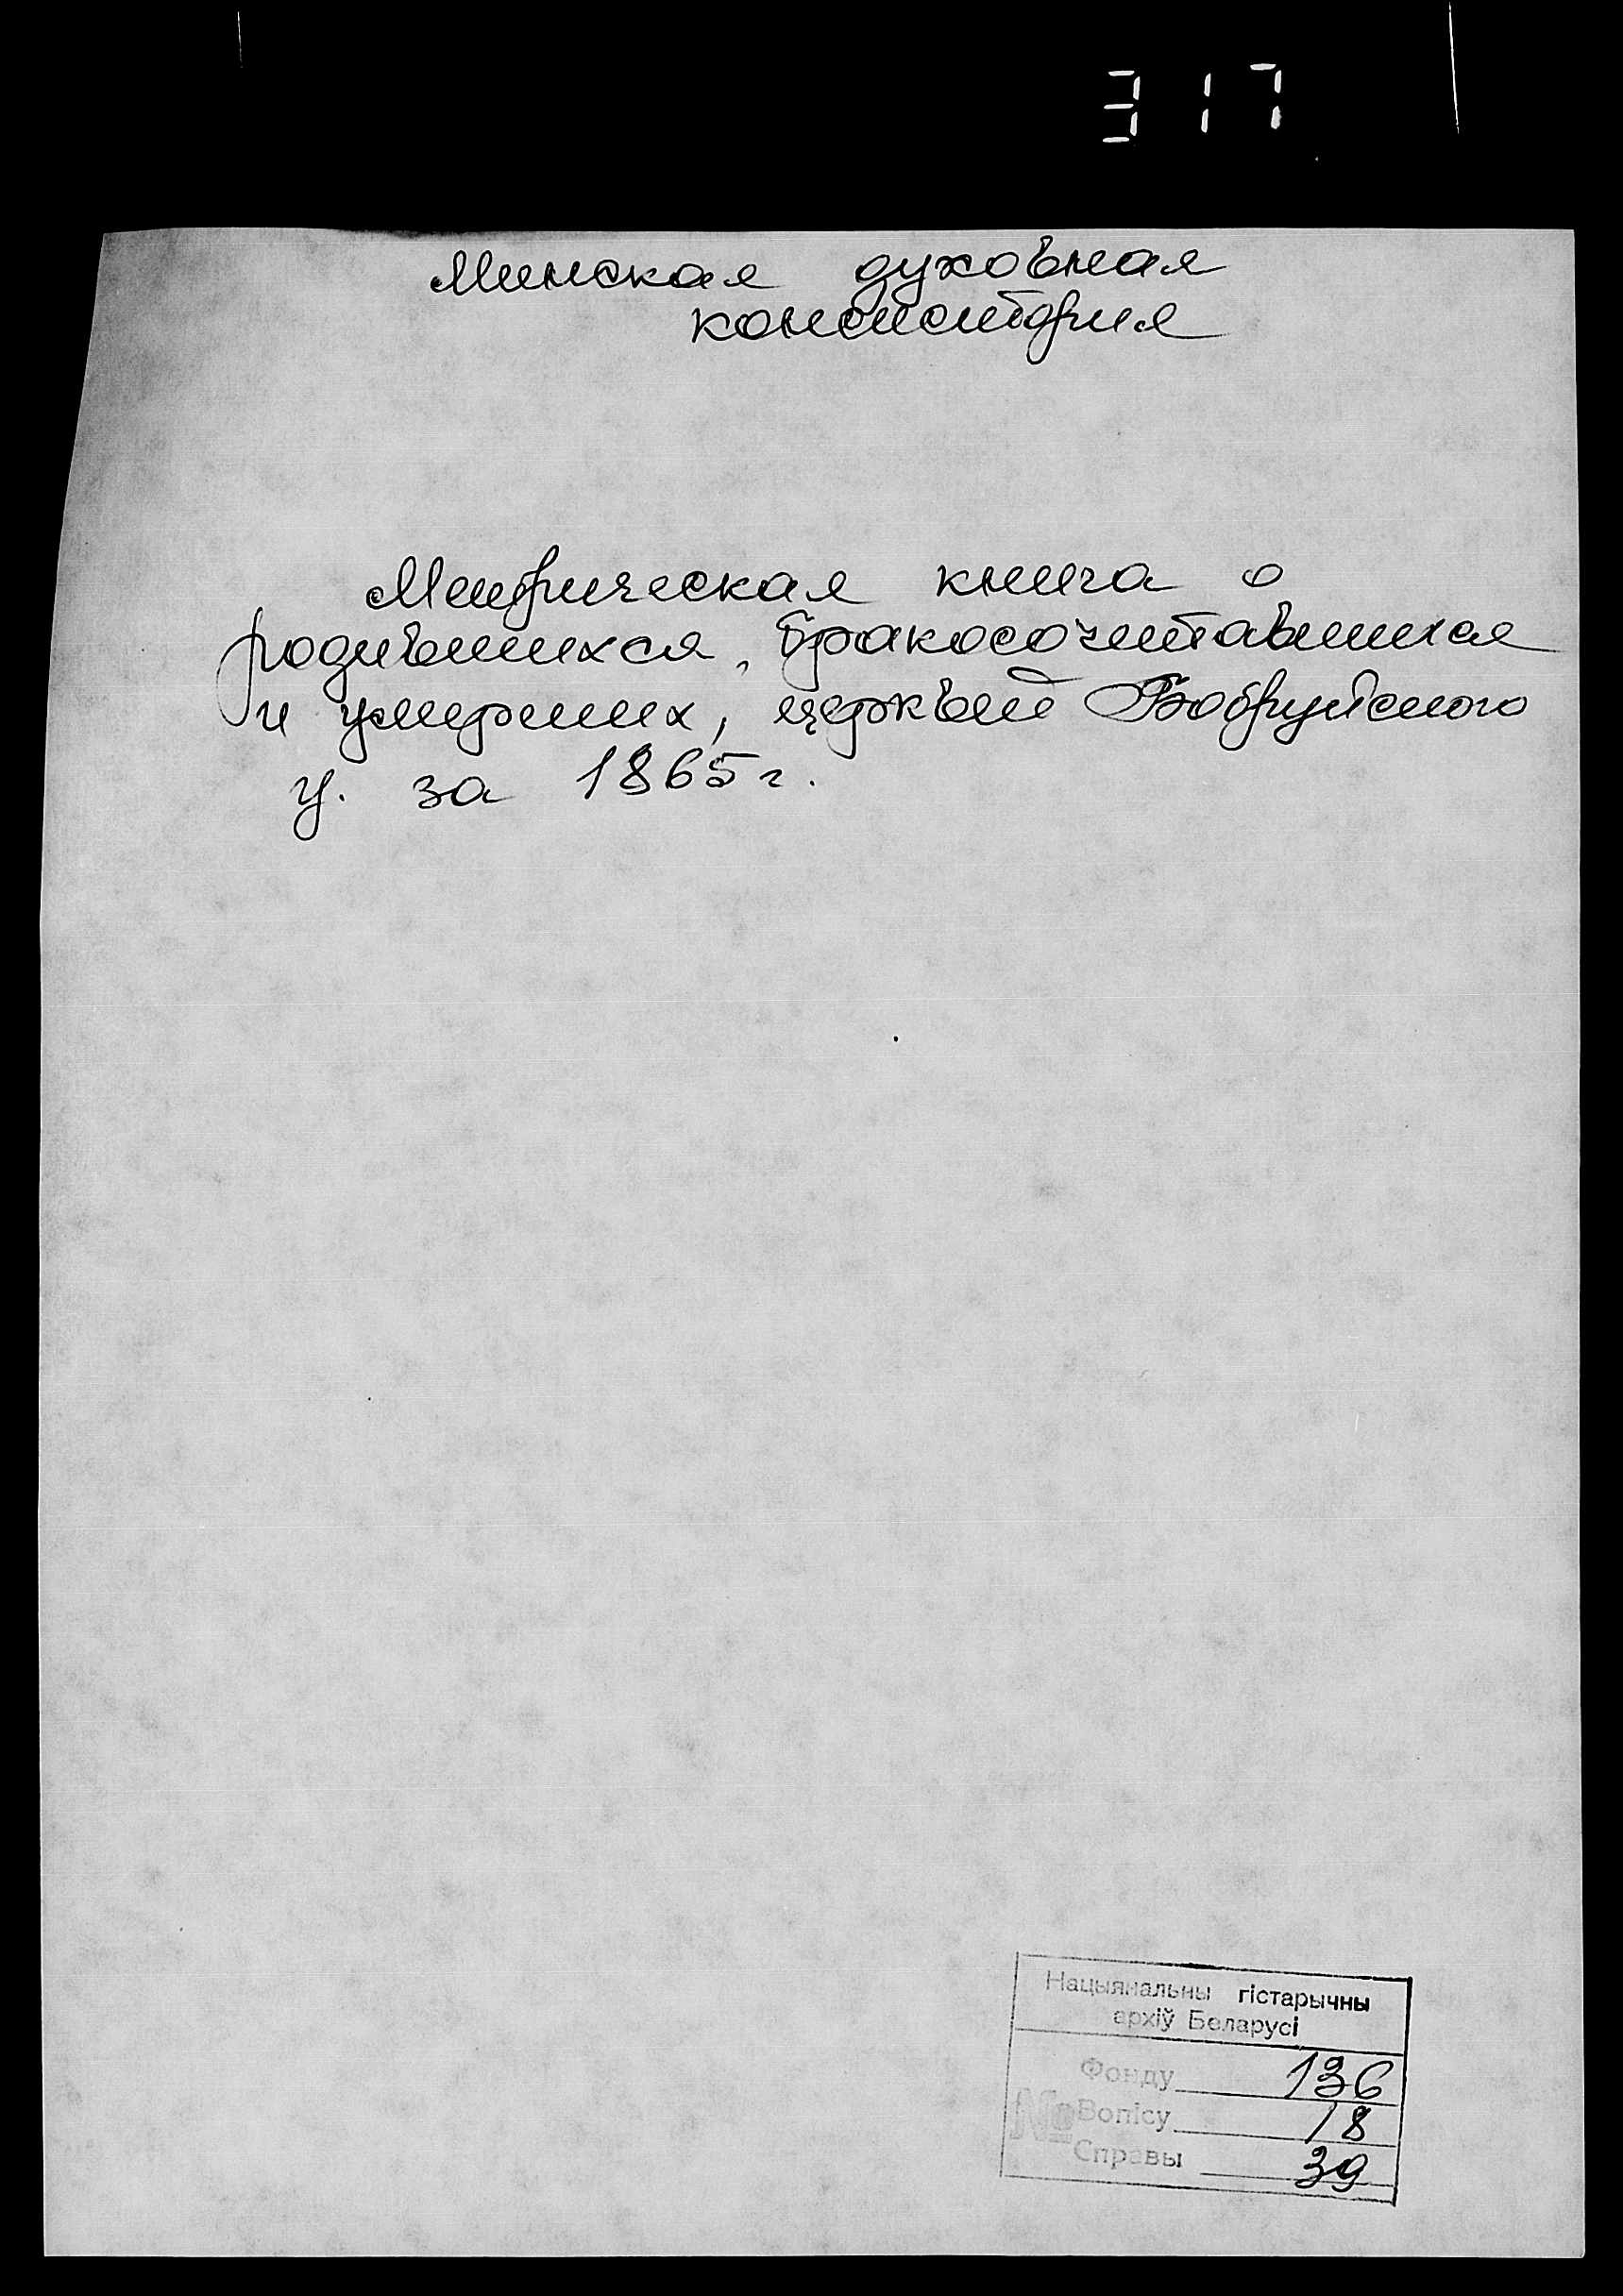 317
Минская духовная
консистория
Метрическая книга о
родившихся, бракосочетавшихся
и умерших, церквей Бобруйского
у. за 1865 г.
Нацыянальны гістарычны
архіў Беларусі
Фонду 136
№ Вопісу 18
Справы 39